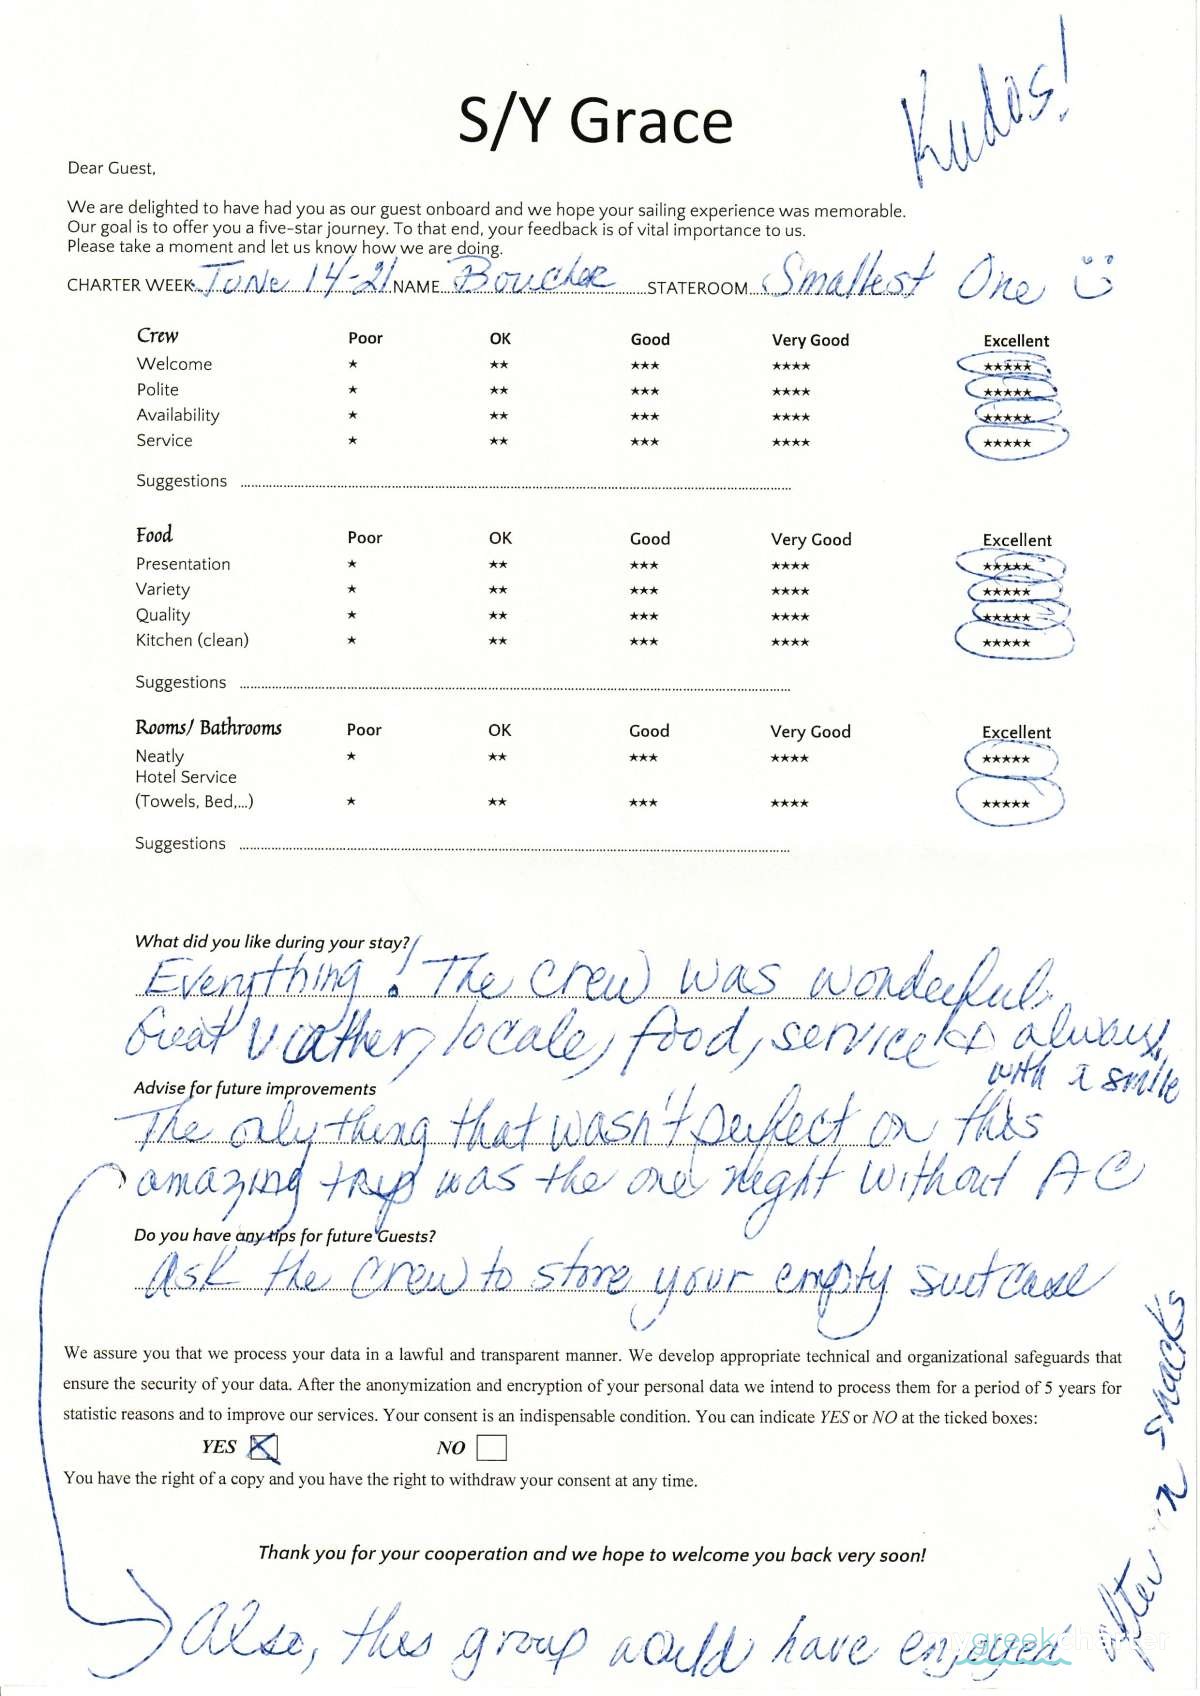 Kudos!
S/Y Grace
Dear Guest,
We are delighted to have had you as our guest onboard and we hope your sailing experience was memorable.
Our goal is to offer you a five-star journey. To that end, your feedback is of vital importance to us.
Please take a moment and let us know how we are doing.
CHARTER WEEK: June 14-21 NAME Boucher STATEROOM Smallest One
Crew Poor OK Good Very Good Excellent
Welcome ★ ★★ ★★★ ★★★★ ★★★★★
Polite ★ ★★ ★★★ ★★★★ ★★★★★
Availability ★ ★★ ★★★ ★★★★ ★★★★★
Service ★ ★★ ★★★ ★★★★ ★★★★★
Suggestions
Food Poor OK Good Very Good Excellent
Presentation ★ ★★ ★★★ ★★★★ ★★★★★
Variety ★ ★★ ★★★ ★★★★ ★★★★★
Quality ★ ★★ ★★★ ★★★★ ★★★★★
Kitchen (clean) ★ ★★ ★★★ ★★★★ ★★★★★
Suggestions
Rooms/ Bathrooms Poor OK Good Very Good Excellent
Neatly ★ ★★ ★★★ ★★★★ ★★★★★
Hotel Service
(Towels, Bed,...) ★ ★★ ★★★ ★★★★ ★★★★★
Suggestions
What did you like during your stay?
Everything! The crew was wonderful.
Great weather, locale, food, service & always
with a smile
Advise for future improvements
The only thing that wasn't perfect on this
amazing trip was the one night without AC
Do you have any tips for future Guests?
Ask the crew to store your empty suitcase
We assure you that we process your data in a lawful and transparent manner. We develop appropriate technical and organizational safeguards that
ensure the security of your data. After the anonymization and encryption of your personal data we intend to process them for a period of 5 years for
statistic reasons and to improve our services. Your consent is an indispensable condition. You can indicate YES or NO at the ticked boxes:
YES NO
You have the right of a copy and you have the right to withdraw your consent at any time.
Thank you for your cooperation and we hope to welcome you back very soon!
Also, this group would have enjoyed
snacks
mygreekcharter